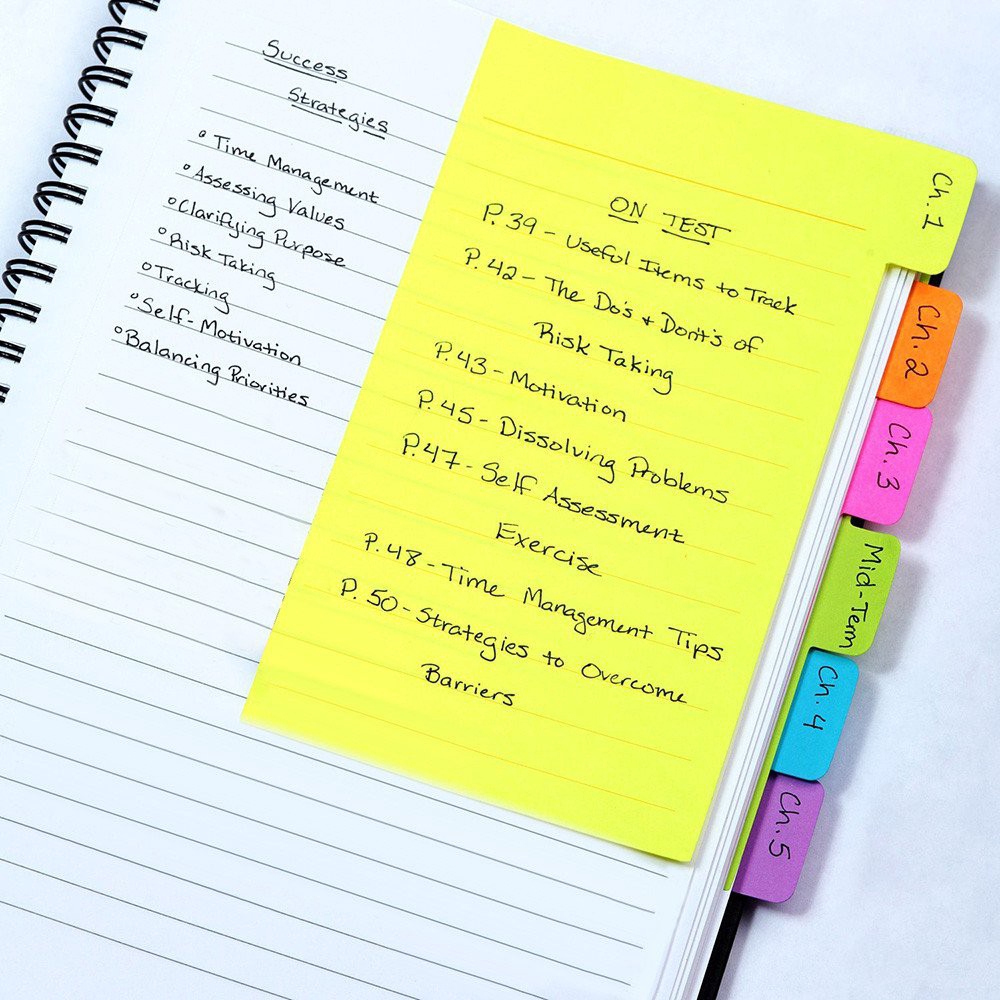 Success
Strategies
° Time Management
° Assessing Values
° Clarifying Purpose
° Risk Taking
° Tracking
° Self-Motivation
° Balancing Priorities
ON TEST
P. 39 - Useful Items to Track
P. 42 - The Do's & Dont's of
Risk Taking
P. 43 - Motivation
P. 45 - Dissolving Problems
P. 47 - Self Assessment
Exercise
P. 48 - Time Management Tips
P. 50 - Strategies to Overcome
Barriers
Ch. 1
Ch. 2
Ch. 3
Mid-Term
Ch. 4
Ch. 5